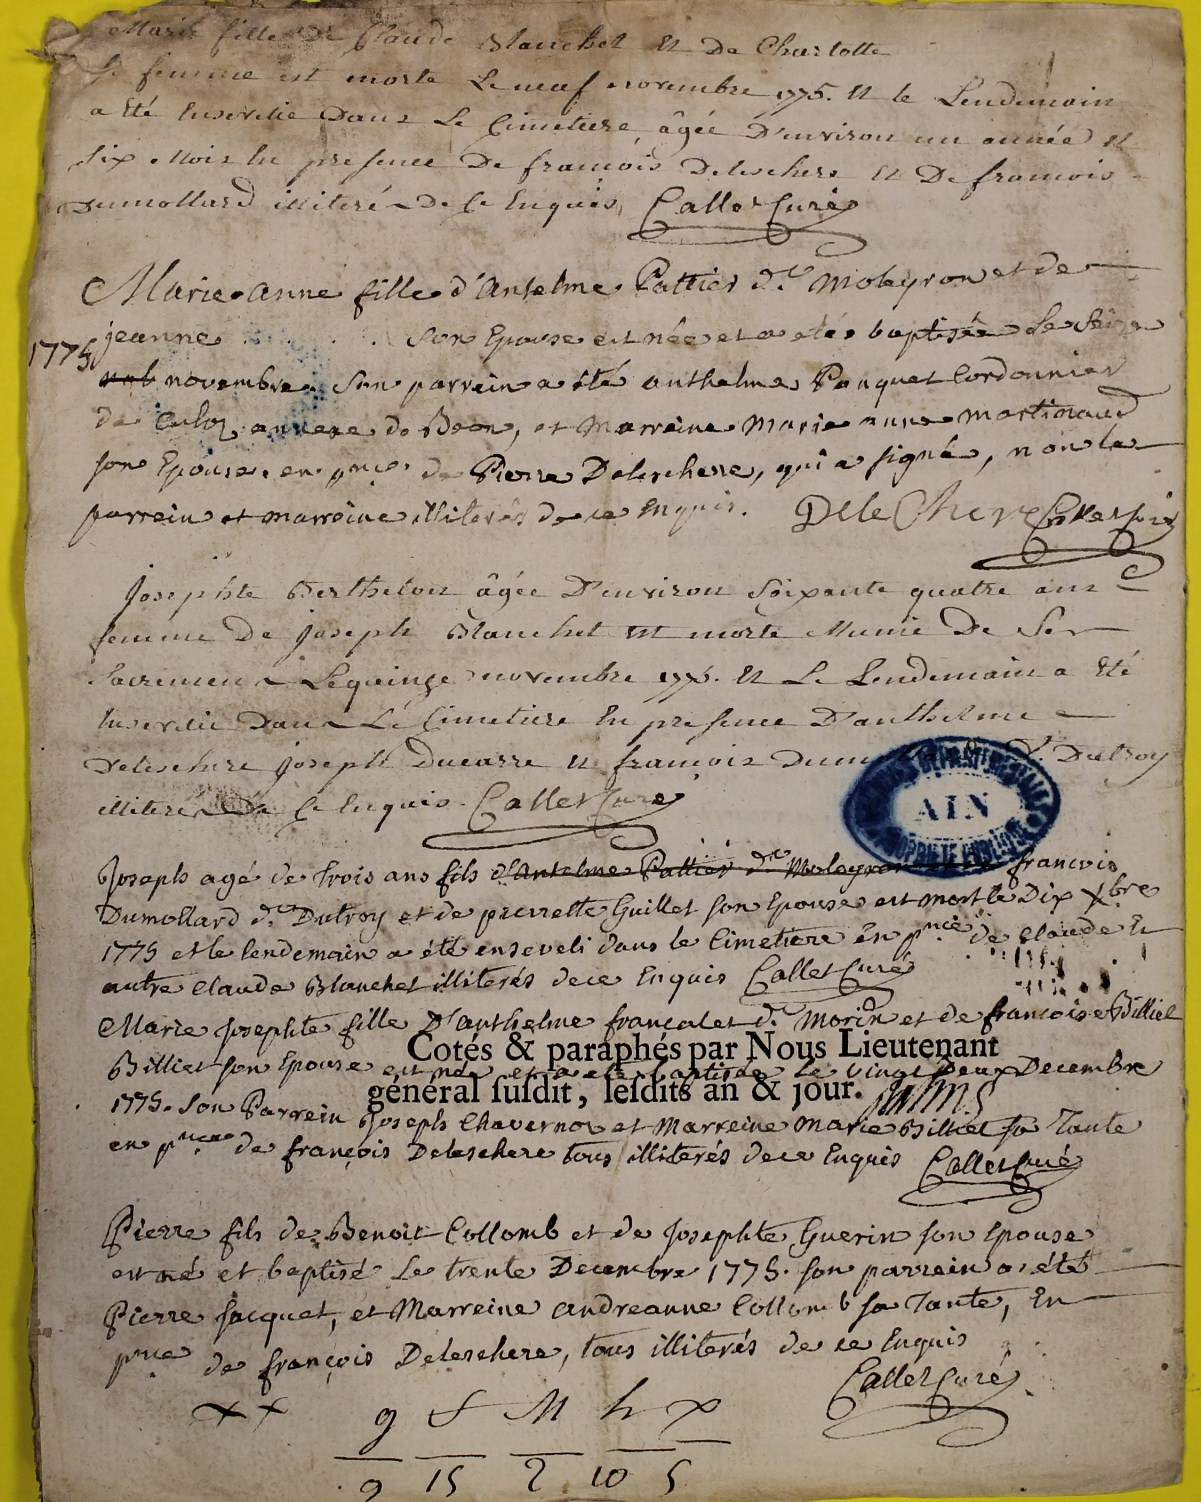 Marie fille de Claude Blanchet Et De Charlotte
Sa femme est morte Le neuf novembre 1775. Et le Lendemain
a Eté Ensevelie Dans Le Cimetiere, âgée D'environ un année Et
six Mois En presence De francois Deleschere Et De francois
Dumollard illiteré De Ce Enquis, Callet Curé
Marie anne fille d'Anselme Pattier d.t Moleyron et de
jeanne son Epouse est née et a eté baptisée Le
1775
novembre. Son parrein a été anthelme Panquet Cordonnier
de Culoz annexe de Beon, et Marreine Marie anne Martinaud
son Epouse. en p.nce de Pierre Deleschere, qui a signé, non le
parrein et marreine illiterés de ce Enquis. DeleChere Callet Curé
Josephte Berthelon âgée D'environ Soixante quatre ans
femme De Joseph Blanchet est morte Munie De Ses
Sacremens Le quinze novembre 1775. Et Le Lendemain a Eté
Ensevelie Dans Le Cimetiere En presence D'anthelme
Deleschere Joseph Ducarre Et francois Dutroy
illiterés De Ce Enquis. Callet Curé
ARCHIVES DEPARTEMENTALES
AIN
PROPRIETE PUBLIQUE
Joseph agé de trois ans fils d'Anselme Pattier d.t Moleyron francois
Dumollard d.t Dutroy et de pierrette Guillet son Epouse est mort le Dix Xbre
1775 et le lendemain a été enseveli dans le Cimetiere en p.nce de Claude Et
autre Claude Blanchet illiterés de ce Enquis Callet Curé
Marie Josephte fille D'anthelme francalet d.t Morin et de francoise Billiet
Billiet son Epouse est née et a eté baptisée Le vingt Deux Decembre
Cotés & paraphés par Nous Lieutenant
général susdit, lesdits an & jour.
1775. Son Parrein Joseph Chavernoz et Marreine Marie Billiet sa Tante
en p.nce de françois Deleschere tous illiterés de ce Enquis Callet Curé
Pierre fils de Benoit Collomb et de Josephte Guerin son Epouse
est né et baptisé Le trente Decembre 1775. son parrein a été
Pierre Jacquet, et Marreine andreanne Collomb sa Tante, En
p.nce de françois Deleschere, tous illiterés de ce Enquis
Callet Curé
9 S M h x
9 15 2 10 5